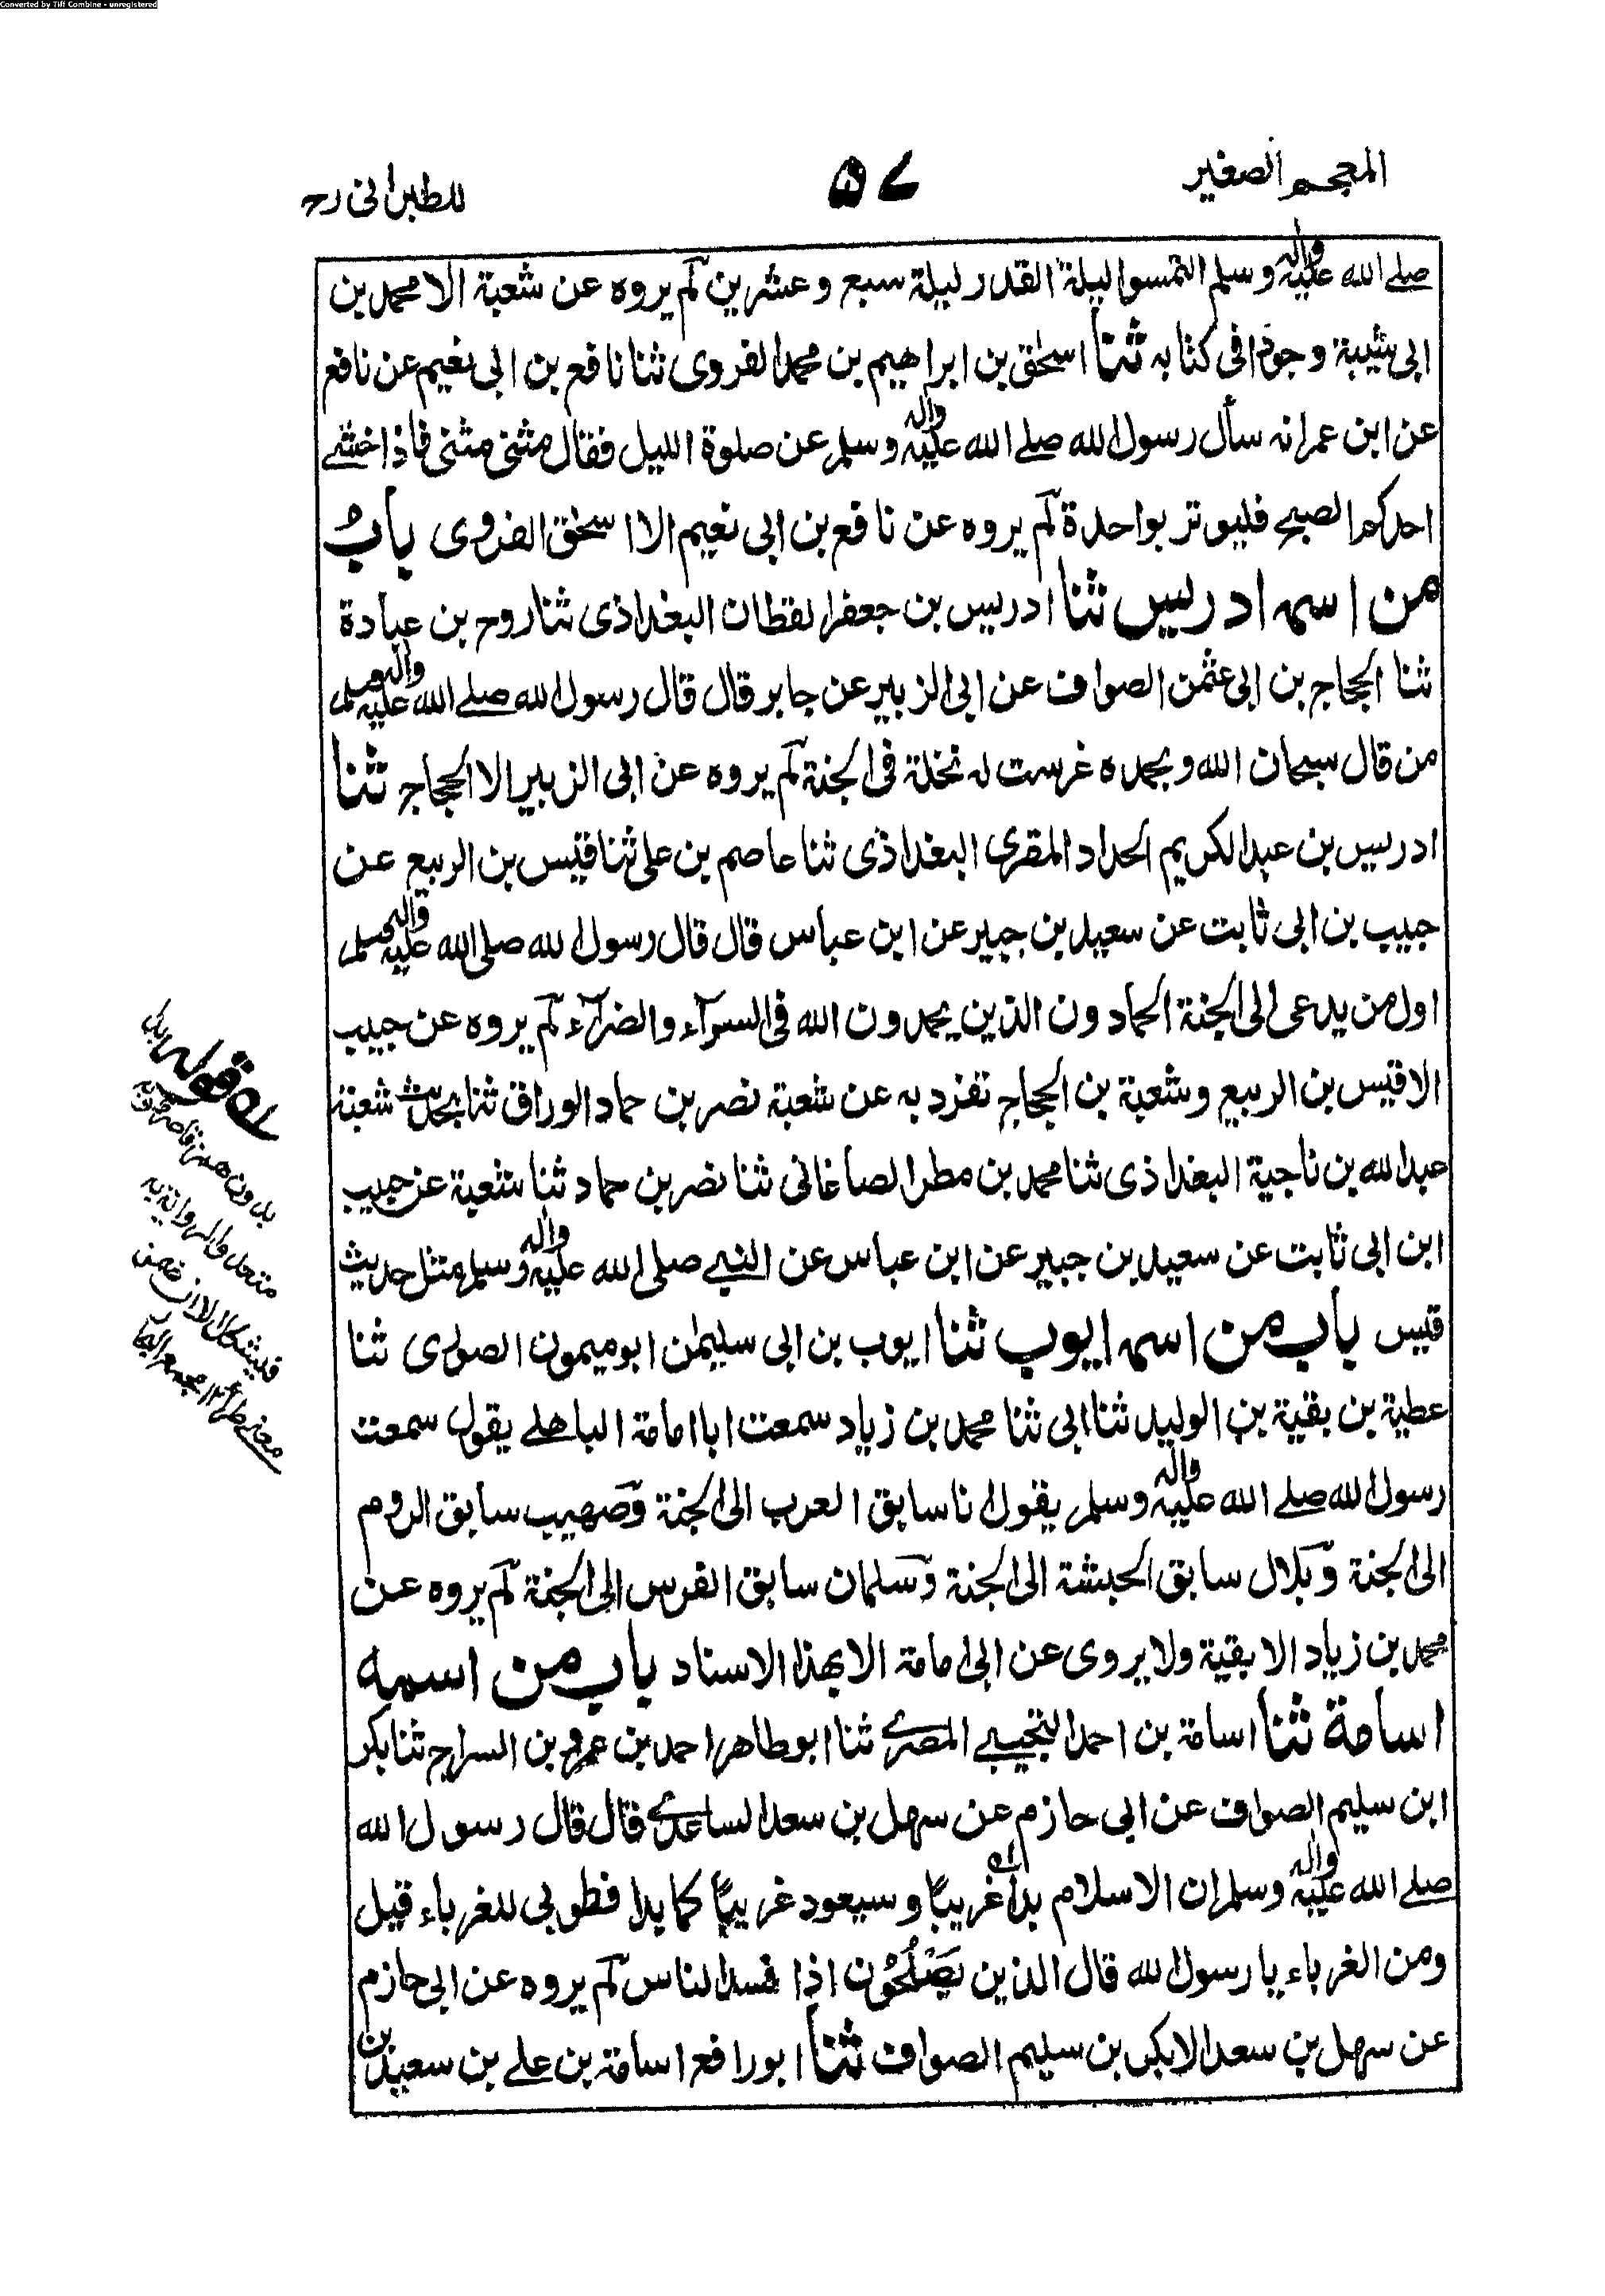 Converted by Tiff Combine - unregistered
المعجم الصغير
٥٧
للطبرانى رح
صلے الله عليه واله وسلم التمسوا ليلة القدر ليلة سبع وعشرين لم يروه عن شعبة الا محمد بن
ابى شيبة وجوه فى كتابه ثنا اسحٰق بن ابراهيم بن محمد الفروى ثنا نافع بن ابى نعيم عن نافع
عن ابن عمر انه سأل رسول الله صلے الله عليه واله وسلم عن صلوة الليل فقال مثنى مثنى فاذا خشے
احدكم الصبح فليوتر بواحدة لم يروه عن نافع بن ابى نعيم الا اسحٰق الفروى باب
من اسمه ادريس ثنا ادريس بن جعفر القطان البغداذى ثنا روح بن عبادة
ثنا الحجاج بن ابى عثمٰن الصواف عن ابى الزبير عن جابر قال قال رسول الله صلے الله عليه واله وسلم
من قال سبحان الله وبحمده غرست له نخلة فى الجنة لم يروه عن ابى الزبير الا الحجاج ثنا
ادريس بن عبد الكريم الحداد المقرى البغداذى ثنا عاصم بن على ثنا قيس بن الربيع عن
حبيب بن ابى ثابت عن سعيد بن جبير عن ابن عباس قال قال رسول الله صلى الله عليه واله وسلم
اول من يدعى الى الجنة الحمادون الذين يحمدون الله فى السرآء والضرآء لم يروه عن حبيب
الا قيس بن الربيع وشعبة بن الحجاج تفرد به عن شعبة نصر بن حماد الوراق ثنا بحديث شعبة
عبد الله بن ناجية البغداذى ثنا محمد بن مطر الصاغانى ثنا نصر بن حماد ثنا شعبة عن حبيب
ابن ابى ثابت عن سعيد بن جبير عن ابن عباس عن النبے صلى الله عليه واله وسلم مثل حديث
قيس باب من اسمه ايوب ثنا ايوب بن ابى سليمٰن ابو ميمون الصورى ثنا
عطية بن بقية بن الوليد ثنا ابى ثنا محمد بن زياد سمعت ابا امامة الباهلے يقول سمعت
رسول الله صلے الله عليه واله وسلم يقول انا سابق العرب الى الجنة وصهيب سابق الروم
الى الجنة وبلال سابق الحبشة الى الجنة وسلمان سابق الفرس الى الجنة لم يروه عن
محمد بن زياد الا بقية ولا يروى عن ابى امامة الا بهذا الاسناد باب من اسمه
اسامة ثنا اسامة بن احمد التجيبے المصرے ثنا ابو طاهر احمد بن عمرو بن السراج ثنا بكر
ابن سليم الصواف عن ابى حازم عن سهل بن سعد الساعدے قال قال رسول الله
صلے الله عليه واله وسلم ان الاسلام بدأ غريبًا وسيعود غريبًا كما بدا فطوبى للغرباء قيل
ومن الغرباء يا رسول الله قال الذين يَصْلُحُون اذا فسد الناس لم يروه عن ابى حازم
عن سهل بن سعد الا بكر بن سليم الصواف ثنا ابو رافع اسامة بن علے بن سعيد بن
له قوله بدا
بدون همز
متعد والرواية به
فيشكل الا ان
مجمع البحار